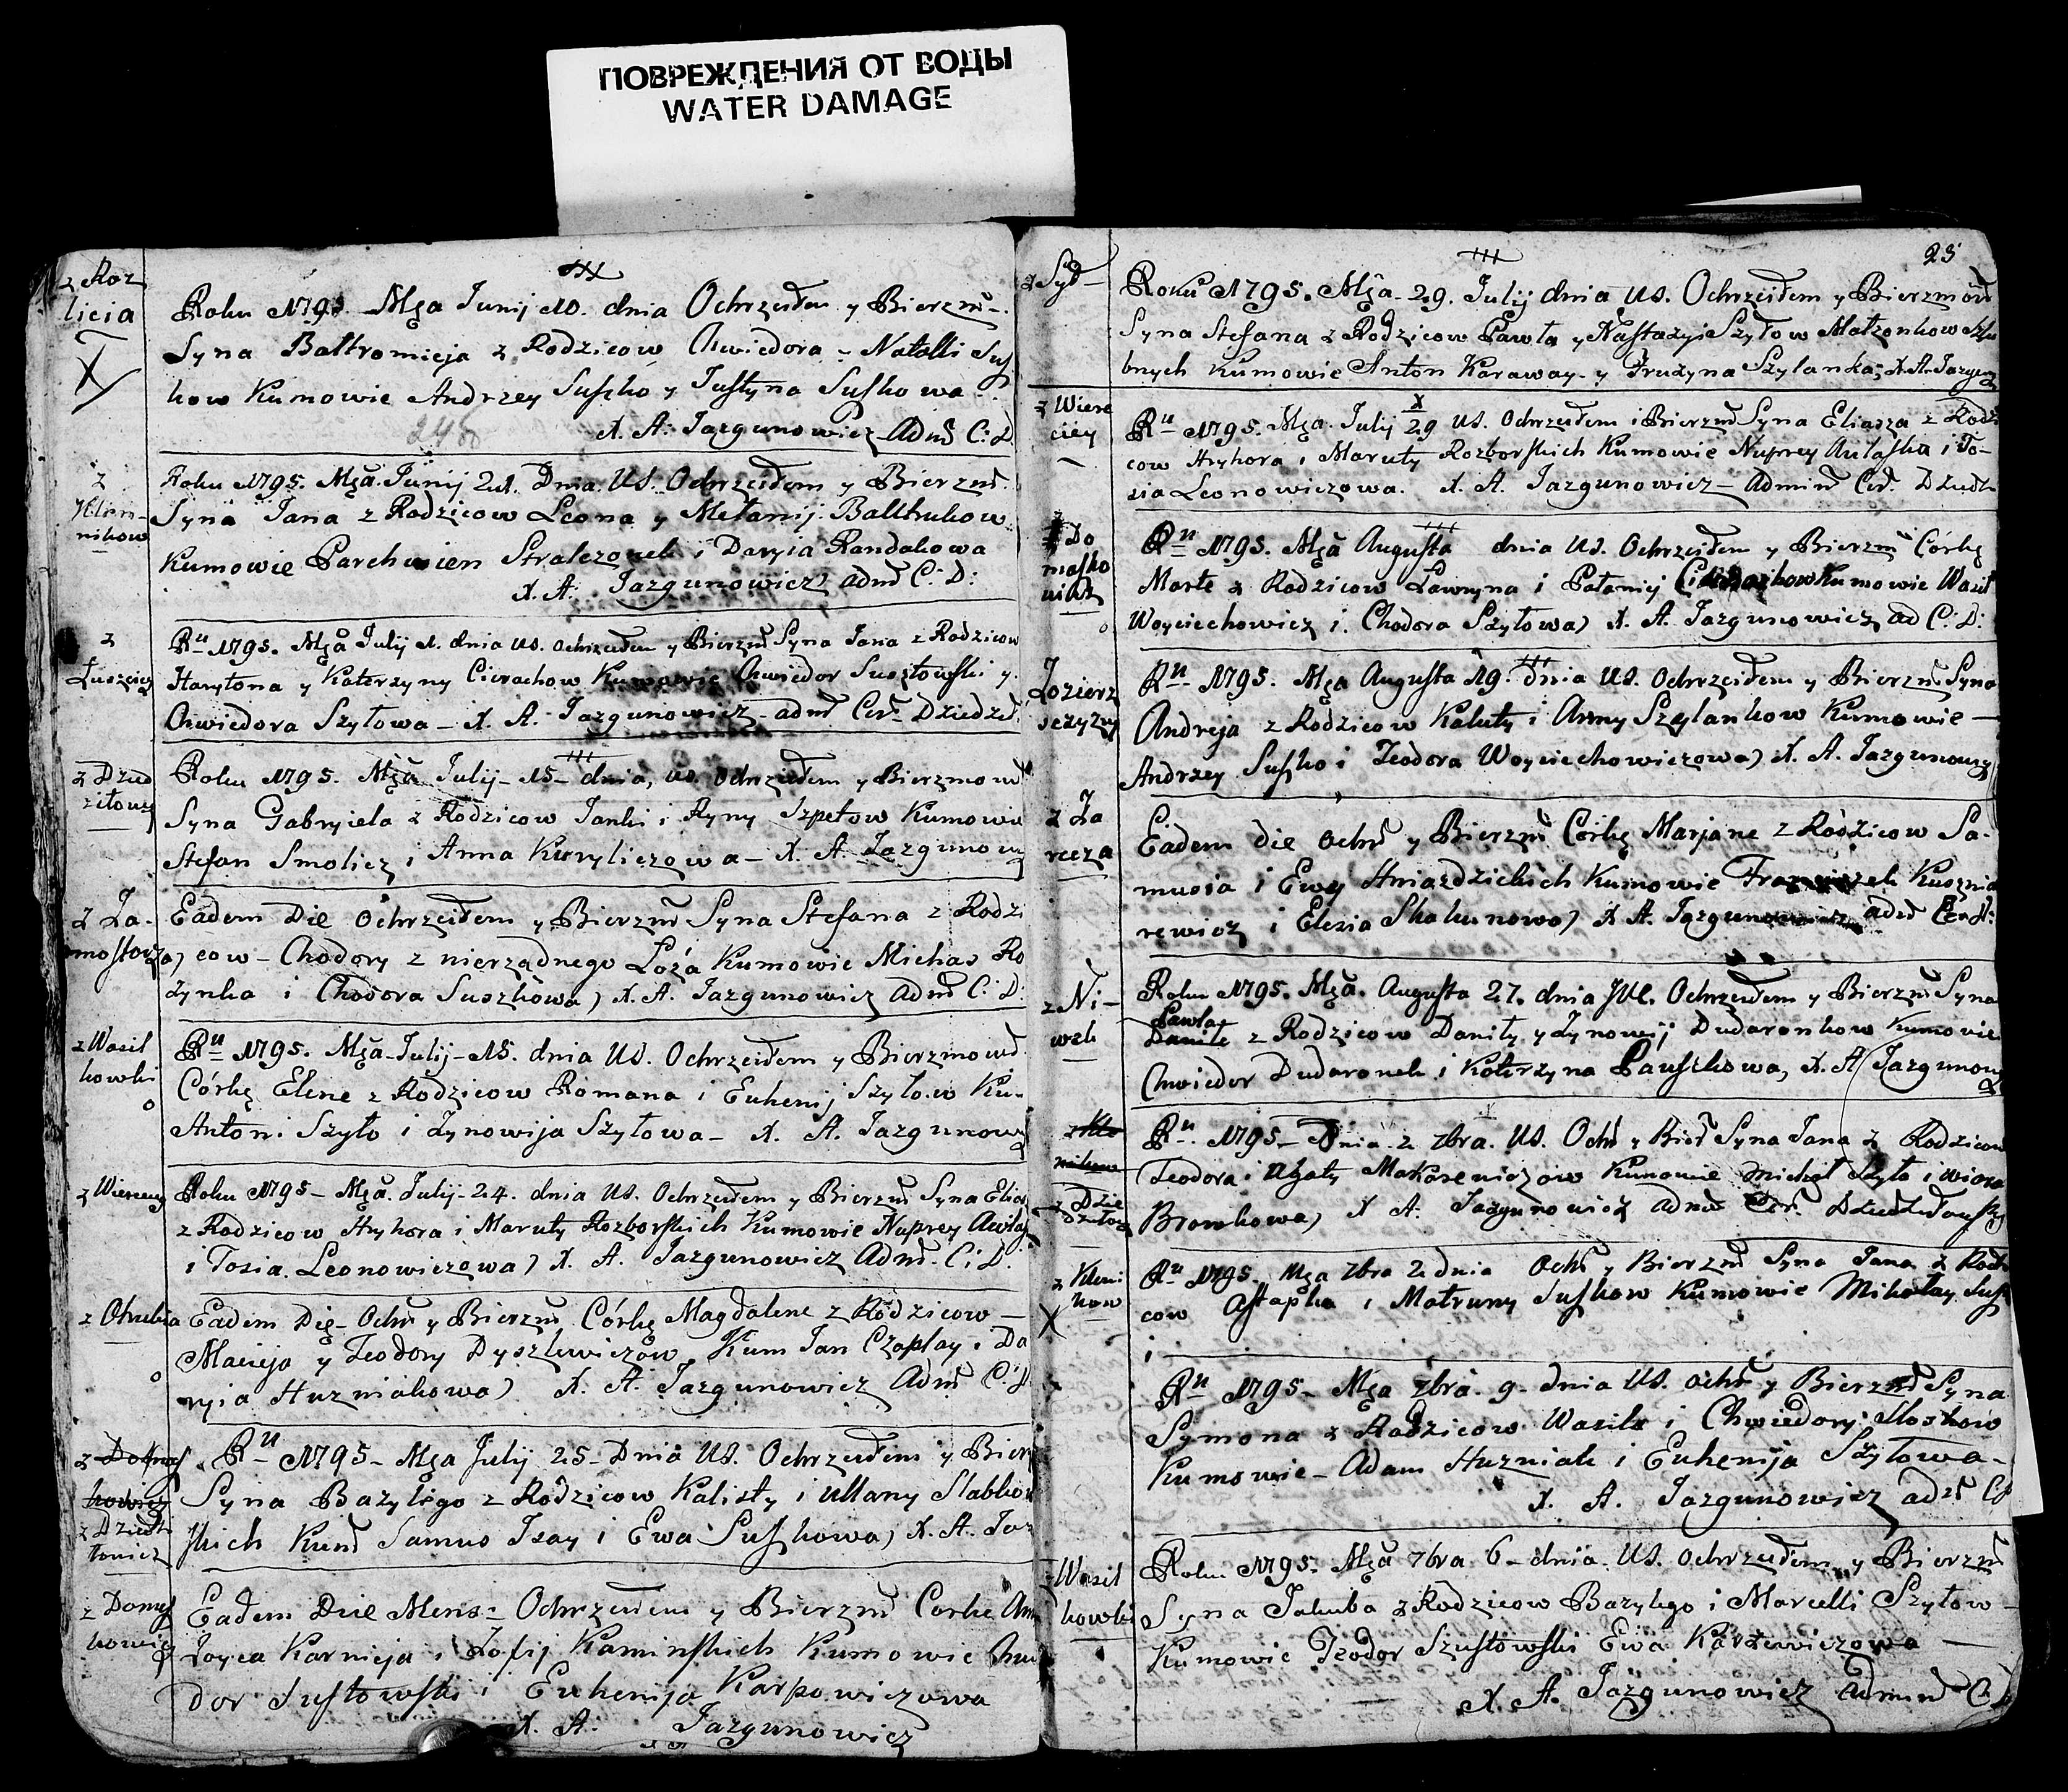 ПОВРЕЖДЕНИЯ ОТ ВОДЫ
WATER DAMAGE
z Roz
licia
X
Roku 1795 Mca Junij 10. dnia Ochrzciłem y Bierzm
Syna Bałtromieja z Rodzicow Chwiedora - Natalli Susz
kow Kumowie Andrzey Suszko y Justyna Suszkowa
X. A. Jazgunowicz Adm C: D.
z
nikow
Roku 1795. Mca Junij 21. Dnia US. Ochrzciłem y Bierzm
Syna Jana z Rodzicow Leona y Mełanij Bałtrukow
Kumowie Parchwien Stralczonek i Daryia Randakowa
X. A. Jazgunowicz adm C: D:
z
Łuszczic
Ru 1795. Mca Julij 1. dnia US. Ochrzciłem y Bierzm Syna Jana z Rodzicow
Harytona y Katerzyny Cierachow Kumowie Chwiedor Suszłowski y
Chwiedora Szyłowa - X. A. Jazgunowicz adm Cer. Dziedził
z Dzied
ziłowicz
Roku 1795. Mca Julij - 15 - dnia, US. Ochrzciłem y Bierzmow
Syna Gabryiela z Rodzicow Janki i Ryny Szpetow Kumowie
Stefan Smolicz i Anna Kuryliczowa - X. A. Jazgunow
z Za-
mostocza
Eadem Die Ochrzciłem y Bierzm Syna Stefana z Rodzi
cow - Chodory z nierządnego Łoża Kumowie Michas Ro
żynka i Chodora Suszkowa X. A. Jazgunowicz Adm C: D:
z Wasil
kowki
o
Ru 1795. Mca Julij - 15. dnia US. Ochrzciłem y Bierzmow
Córkę Elene z Rodzicow Romana i Euhenij Szyłow Ku-
Antoni Szyło i Zynowija Szyłowa - X. A. Jazgunow
z Wiereicy
Roku 1795 - Mca Julij - 24. dnia US. Ochrzciłem y Bierzm Syna Elias
z Rodzicow Hryhora i Maruty Rozborskich Kumowie Nuprey Awłas
i Tosia Leonowiczowa X. A. Jazgunowicz Adm C: D.
z Otrubia
o
Eadem Die - Ochr y Bierzm Córkę Magdalene z Rodzicow -
Macieja y Teodory Dyszlewiczow Kum Jan Czaplay i Da
ryia Huzniakowa X. A. Jazgunowicz Adm C: D
z Domasz
kowicz
z Dzied
łowicz
Ru 1795 - Mca July 25 - Dnia US. Ochrzciłem y Bierz
Syna Bazylego z Rodzicow Kalisty i Ullany Słabkow
skich Kum Samus Isay i Ewa Suszkowa X. A. Jaz
z Domasz
kowicz
Eadem Die Mens - Ochrzciłem y Bierzm Corkę
Karnieja i Zofij Kaminskich Kumowie Chwie
dor Susłowski i Euhenija Karpowiczowa
X. A. Jazgunowicz
25
z Syd -
Roku 1795. Mca - 29. Julij dnia US. Ochrzciłem y Bierzmow
Syna Stefana z Rodzicow Pawła y Nastazyi Szyłow Małzonkow Szlu
bnych Kumowie Anton Karaway - y Fruzyna Szylanka; X. A. Jazgun
z Wiere
ciey
Ru 1795. Mca Julij 29 US. Ochrzciłem i Bierzm Syna Eliasza z Rodzi
cow Hryhora i Maruty Rozborskich Kumowie Nuprey Aułaska i To-
sia Leonowiczowa. X. A. Jazgunowicz - Admin Cer. Dziedz
z Do
maszko
wicz
o
Ru 1795. Mca Augusta dnia US. Ochrzciłem y Bierzm Córkę
Marte z Rodzicow Ławryna i Połanij Kumowie Wasil
Woyciechowicz i Chodora Szyłowa X. A. Jazgunowicz ad C: D:
Zozierz
sczyzny
Ru 1795. Mca Augusta 19. dnia US. Ochrzciłem y Bierzm Syna
Andreja z Rodzicow Kaluty i Anny Szylankow Kumowie -
Andrzey Suszko i Teodora Woyciechowiczowa X. A. Jazgunowicz
z Za
recza
Eadem die Ochr y Bierzm Córkę Marjane z Rodzicow Sa-
musia i Ewy Hniazdzickich Kumowie Franciszek Kusznia
rewicz i Elezia Skakunowa X. A. Jazgunowicz adm Cer D:
z Ni-
wek
Roku 1795. Mca. Augusta 27. dnia JW. Ochrzciłem y Bierzm Syna
Pawła
Daniłe z Rodzicow Daniły y Zynowij Dudaronkow Kumowie
Chwiedor Dudaronek i Katerzyna Pauszkowa, X. A Jazgunow
z Kle
nikow
z Dzie
dziłowicz
Ru 1795 - Dnia 2 7bra. US. Ochr y Bier Syna Jana z Rodzicow
Teodora i Ahaty Makarewiczow Kumowie Michał Szyło i Wiera
Browkowa X A. Jazgunowicz adm Cer Dziedziłowski
z Kleni
kow
X
Ru 1795. Mca 7bra 2 dnia Ochr y Bierzm Syna Jana z Rodzi
cow Astapka i Matruny Suszkow Kumowie Mikołay Susz
i
Ru 1795 - Mca 7bra. 9 - dnia US. Ochr y Bierzm Syna
Symona z Rodzicow Wasila i Chwiedory
Kumowie - Adam Huzniak i Euhenija Szyłowa -
X. A. Jazgunowicz adm C
Wasil
kowki
Roku 1795. Mca 7bra 6 - dnia US. Ochrzciłem y Bierzm
Syna Jakuba z Rodzicow Bazylego i Marcelli Szyłow -
Kumowie Teodor Szusłowski Ewa Karżewiczowa -
X. A. Jazgunowicz Admin C. D